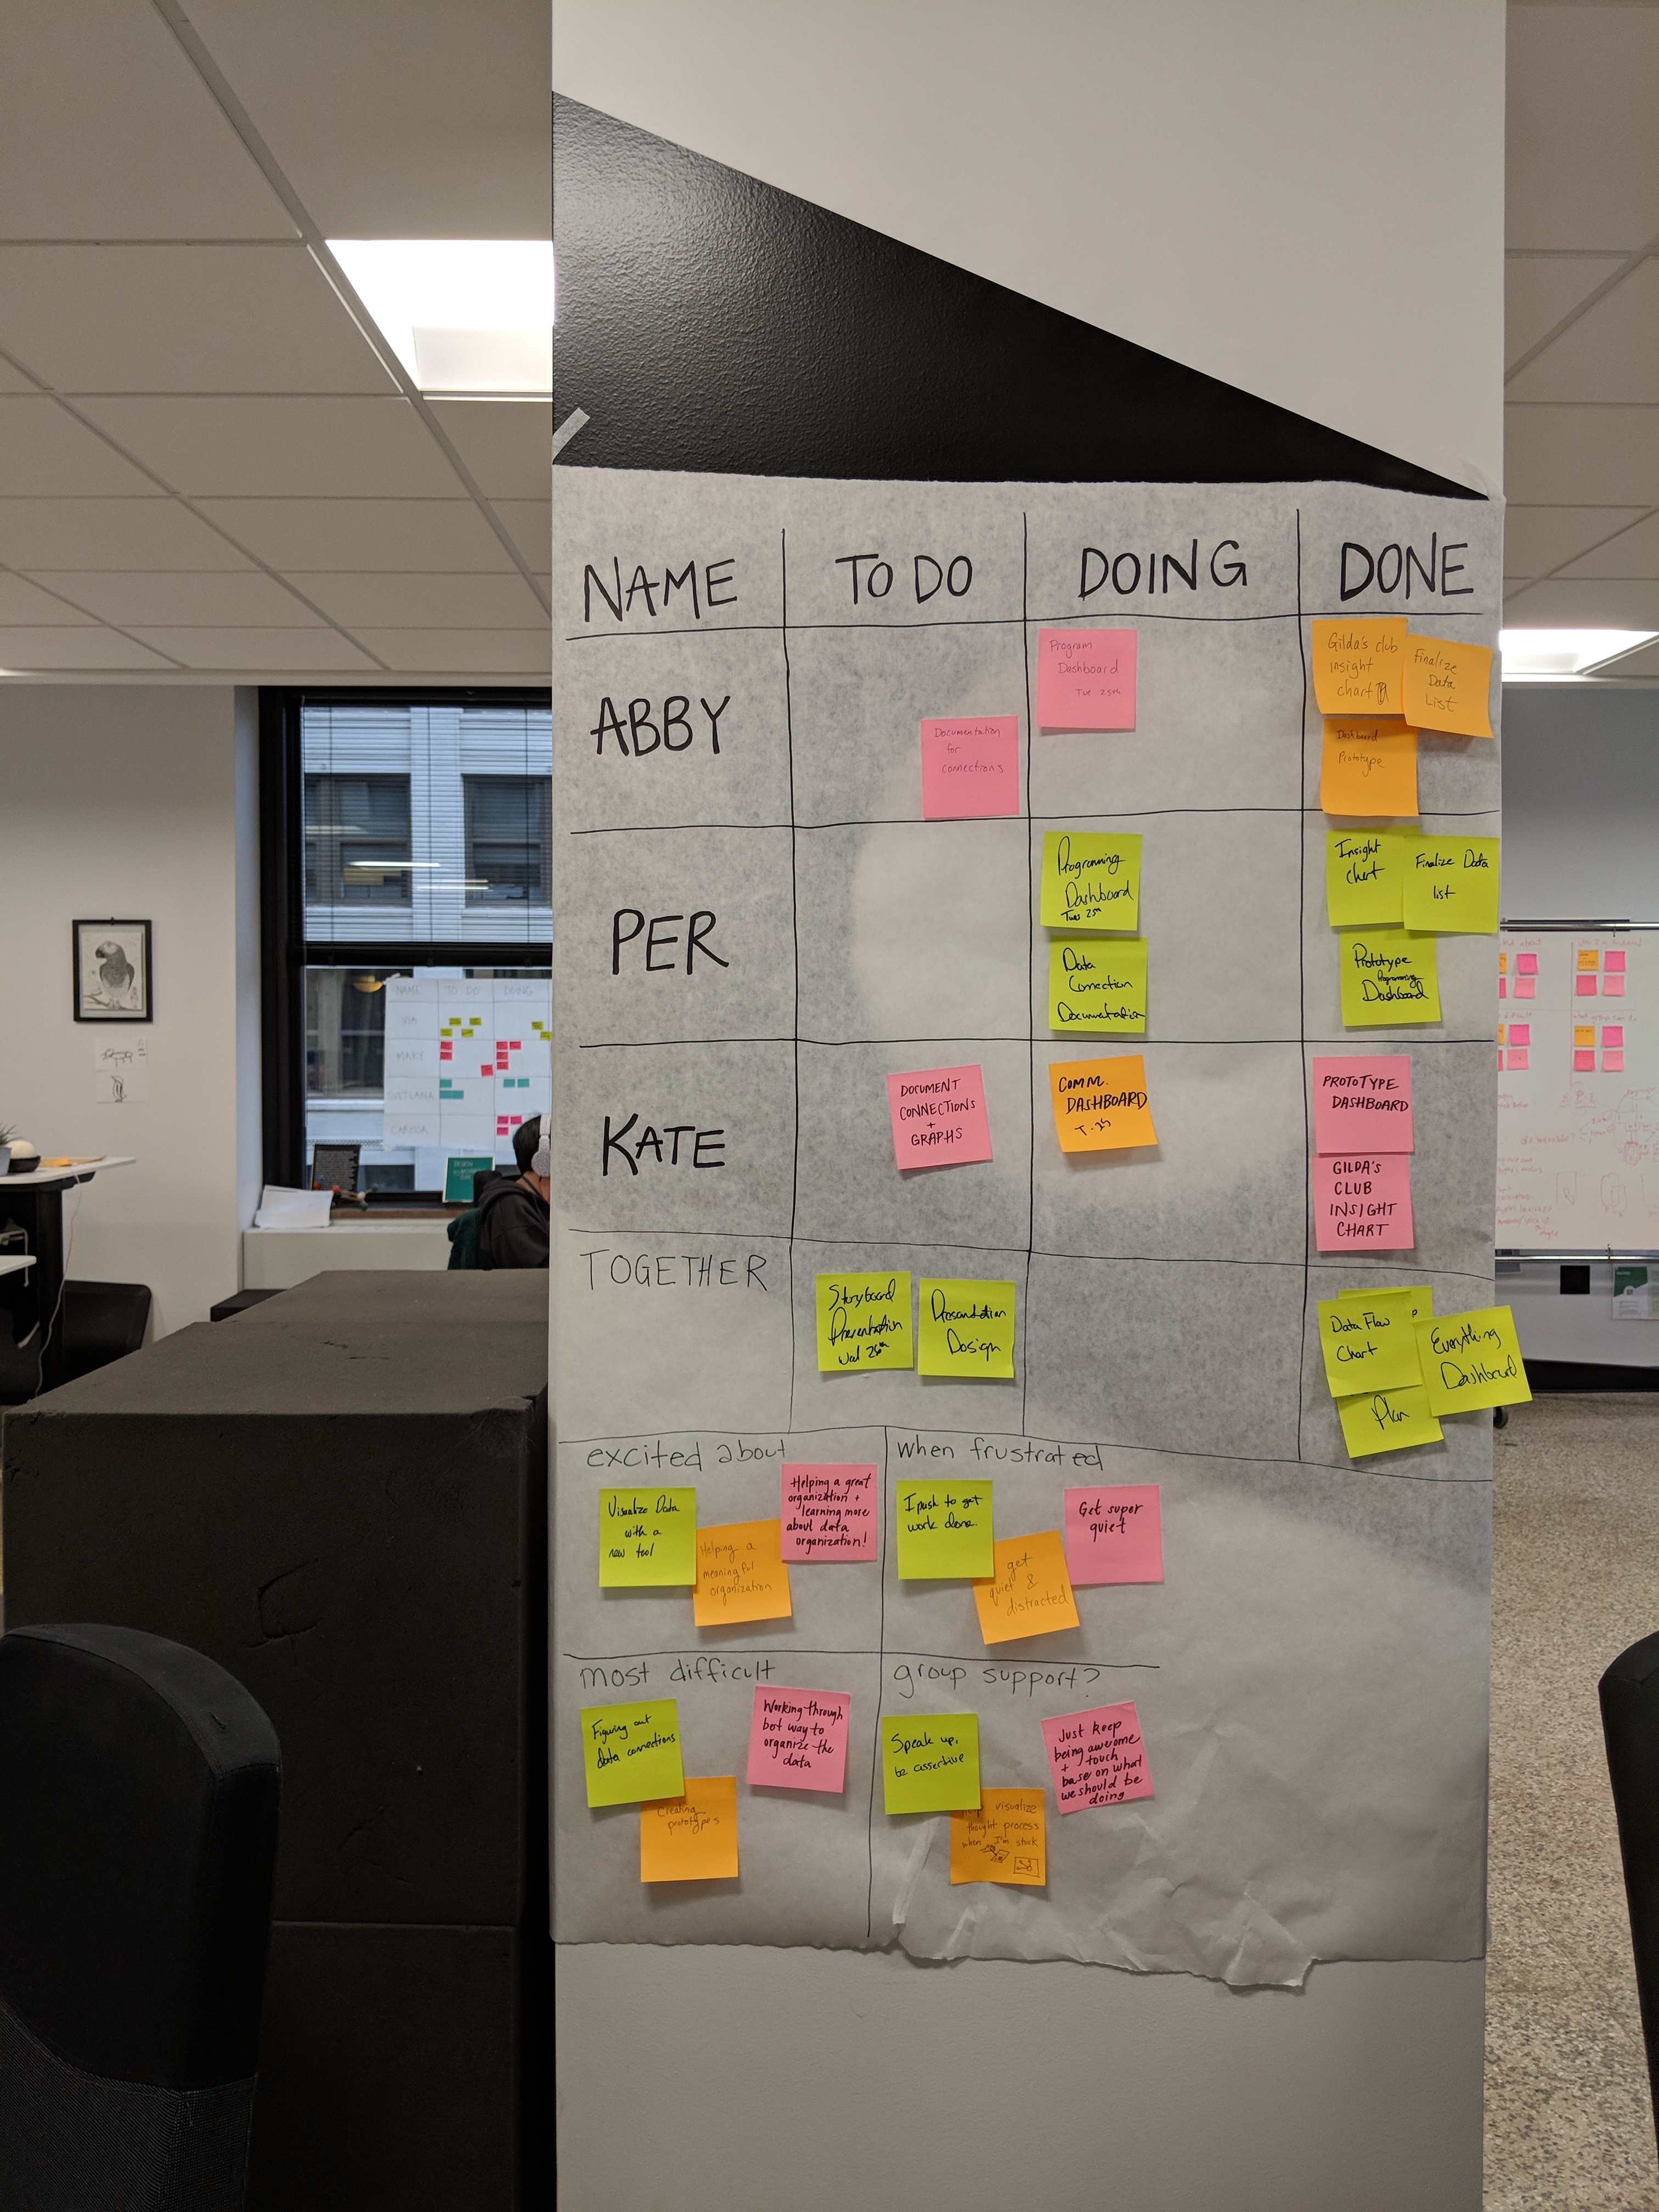 NAME TO DO DOING DONE
ABBY
Documentation
for
connections
Program
Dashboard
Tue 25th
Gilda's club
insight
chart
Finalize
Data
List
Dashboard
Prototype
PER
Programming
Dashboard
Tues 25th
Data
Connection
Documentation
Insight
chart
Finalize Data
list
Prototype
Programming
Dashboard
KATE
DOCUMENT
CONNECTIONS
+
GRAPHS
COMM.
DASHBOARD
T. 25
PROTOTYPE
DASHBOARD
GILDA'S
CLUB
INSIGHT
CHART
TOGETHER
Storyboard
Presentation
Wed 26th
Presentation
Design
Data Flow
Chart
Plan
Everything
Dashboard
excited about
Visualize Data
with a
new tool
Helping a
meaningful
organization
Helping a great
organization +
learning more
about data
organization!
when frustrated
I push to get
work done.
get
quiet &
distracted
Get super
quiet
most difficult
Figuring out
data connections
Creating
prototypes
Working through
best way to
organize the
data
group support?
Speak up,
be assertive
visualize
thought process
when I'm stuck
Just keep
being awesome
+ touch
base on what
we should be
doing
NAME TO DO DOING
VIA
MARY
SVETLANA
CARISSA